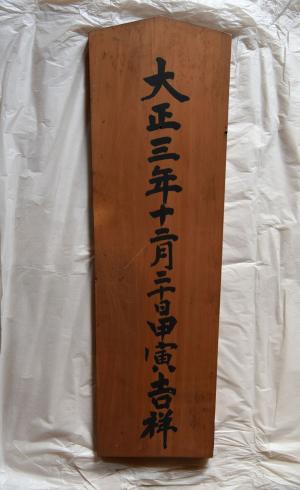 大正三年十二月二十日甲寅吉祥